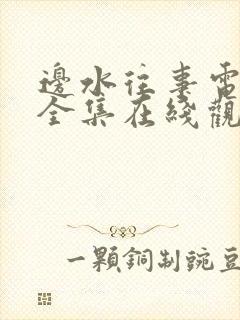 邊水往事電
全集在綫觀
一顆銅制豌豆